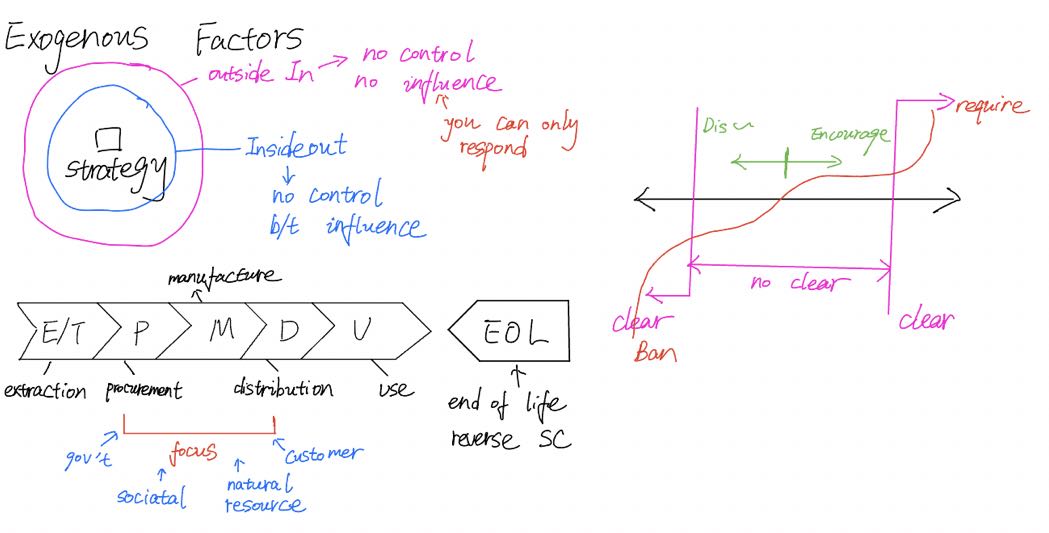 Exogenous Factors
outside In → no control
no influence
you can only
respond
strategy
Insideout
no control
b/t influence
manufacture
E/T P M D U
EOL
extraction procurement distribution use
end of life
reverse SC
focus
gov't
sociatal
natural
resource
Customer
require
Encourage
no clear
clear
clear
Ban